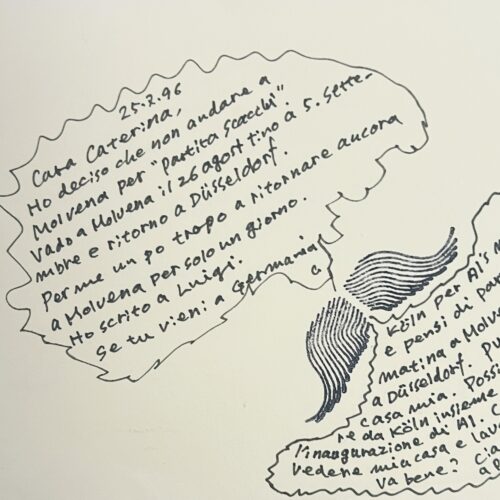 25.7.96
Cara Caterina,
Ho deciso che non andare a
Molvena per "partita scacchi".
Vado a Molvena il 26 agost fino a 5. sette-
mbre e ritorno a Düsseldorf.
Per me un po tropo a ritornare ancora
a Molvena per solo un giorno.
Ho scrito a Luigi.
Se tu vieni a Germania
Köln per Al's
e pensi di par
matina a Molve
a Düsseldorf. Pu
casa mia. Possi
re da Köln insieme
l'inaugurazione di Al. C
vedere mia casa e lav
va bene? Cia